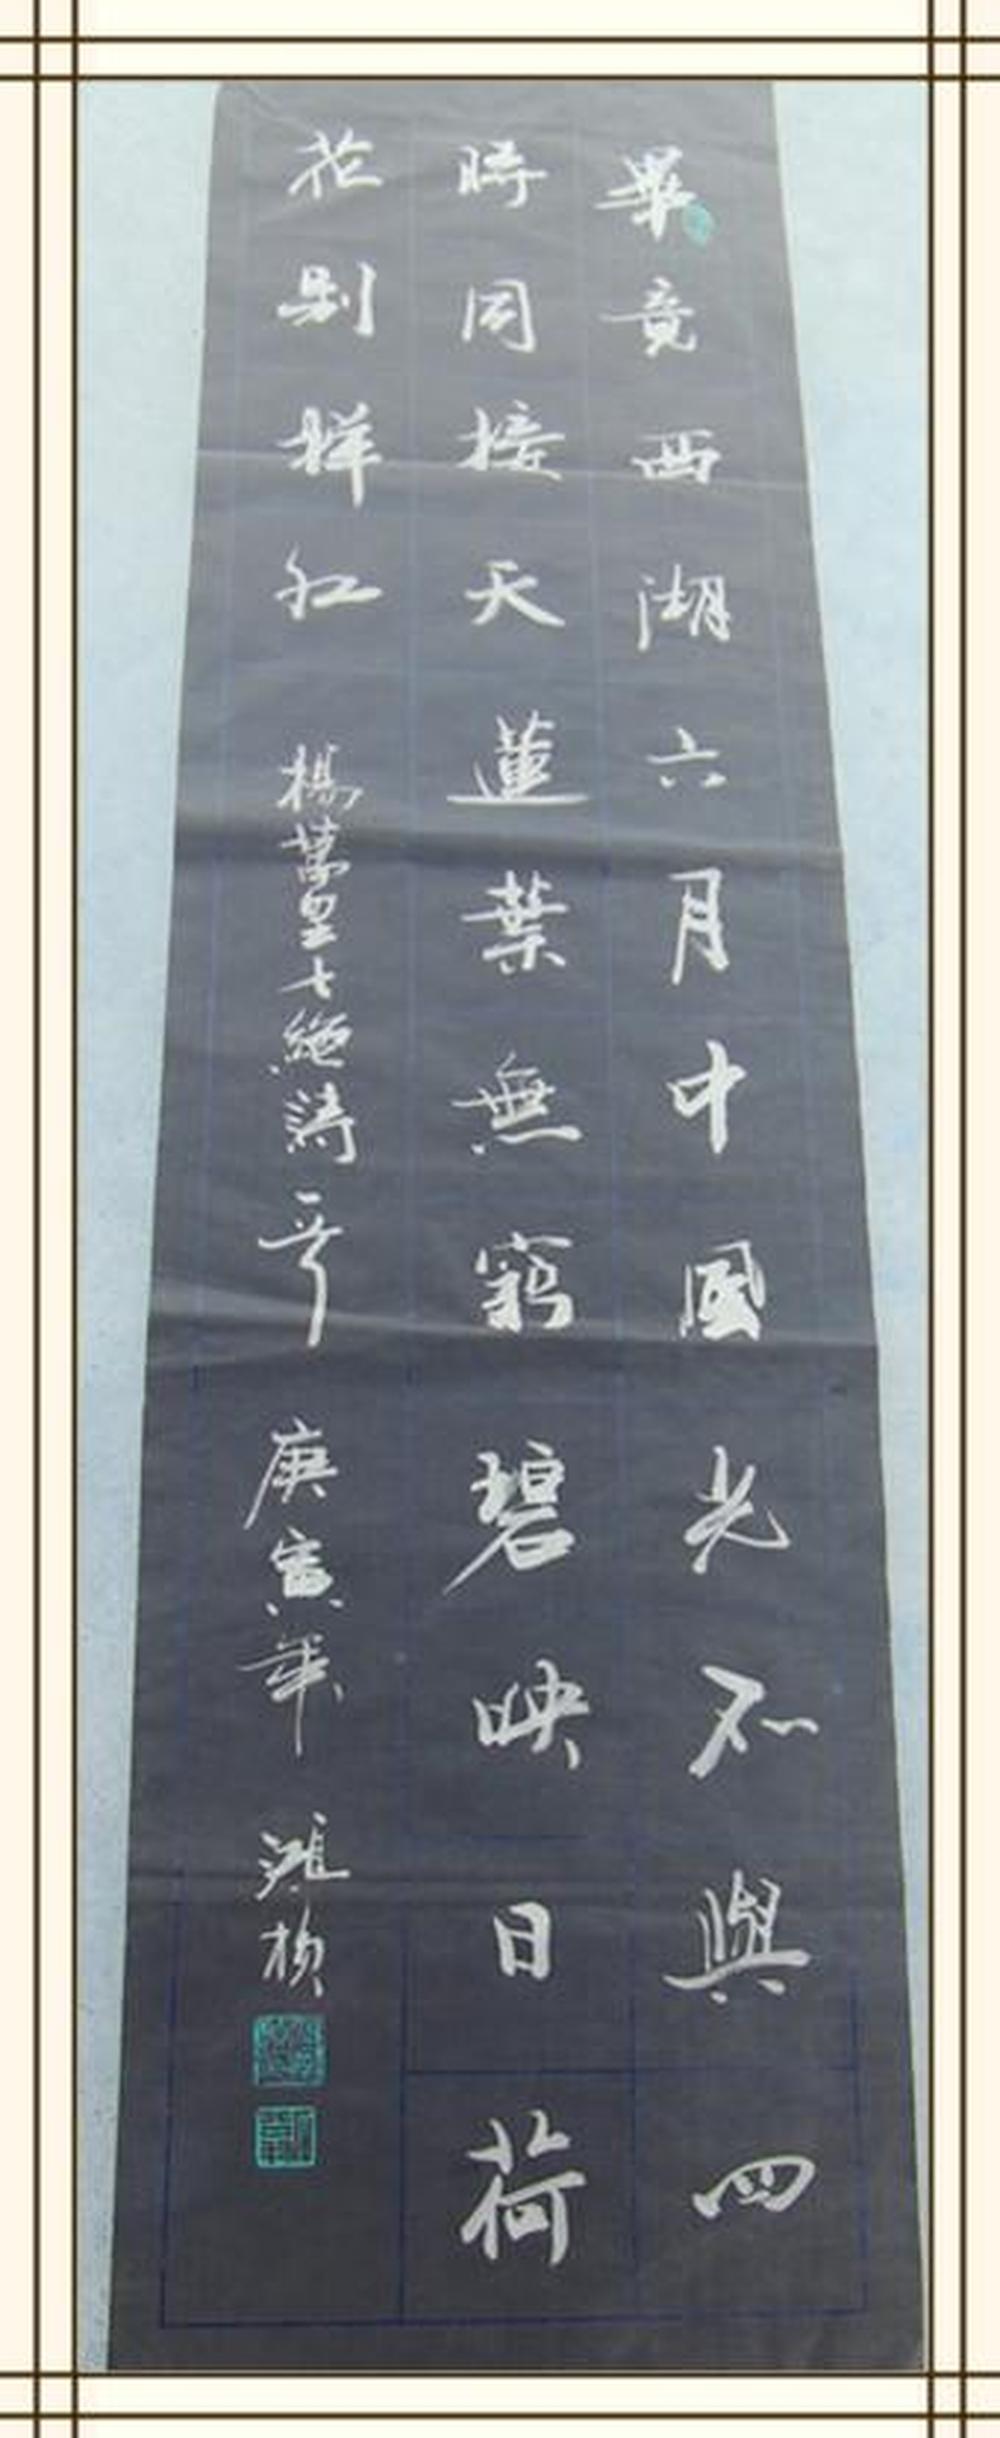 畢竟西湖六月中風光不與四
時同接天蓮葉無窮碧映日荷
花别样紅 楊萬里七絕詩一首 庚寅年